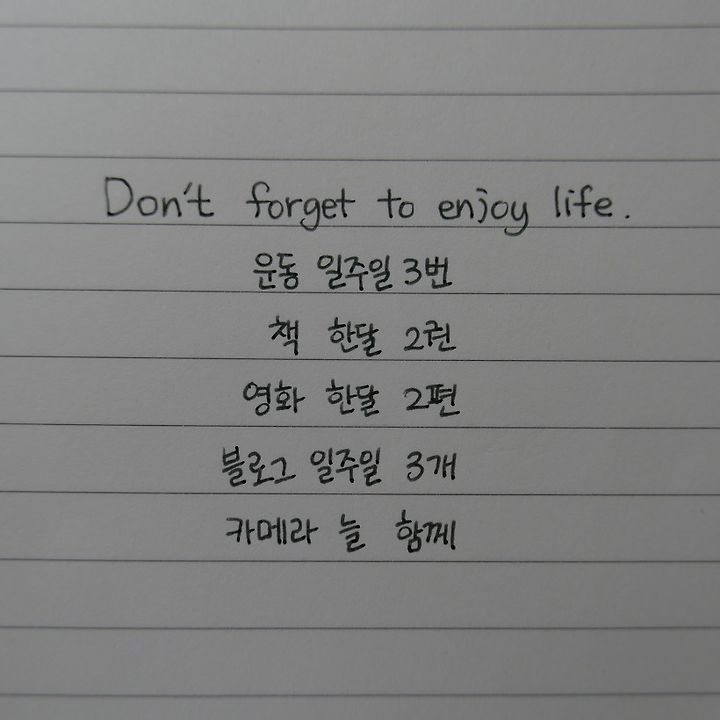 Don't forget to enjoy life.
운동 일주일 3번
책 한달 2권
영화 한달 2편
블로그 일주일 3개
카메라 늘 함께